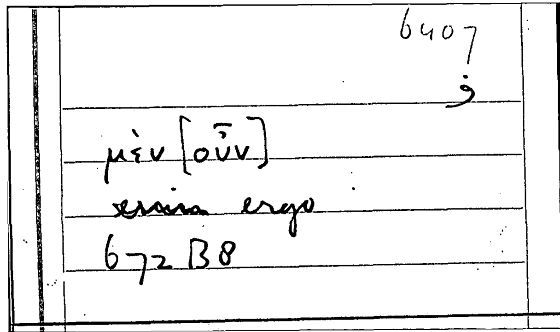 6407
و
μὲν [οὖν]
ergo
672 B8